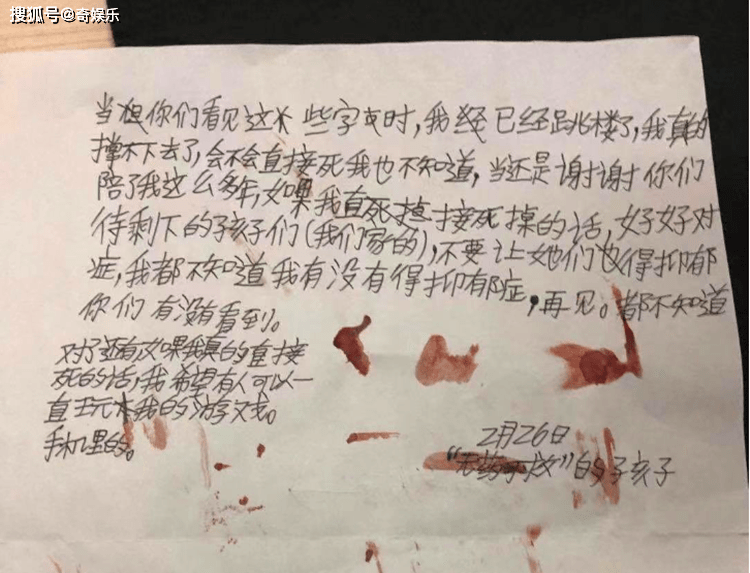 搜狐号@奇娱乐
当你们看见这些字时,我经已经跳楼了,我真的
撑不下去了,会不会直接死我也不知道,当还是谢谢你们
陪了我这么多年,如果我直接死掉的话,好好对
待剩下的孩子们(我们家的),不要让她们也得抑郁
症,我都不知道我有没有得抑郁症,再见。都不知道
你们有没有看到。
对了还有如果我真的直接
死的话,我希望有人可以一
直玩我的游戏。
手机里的。
2月26日
“无药可救”的孩子